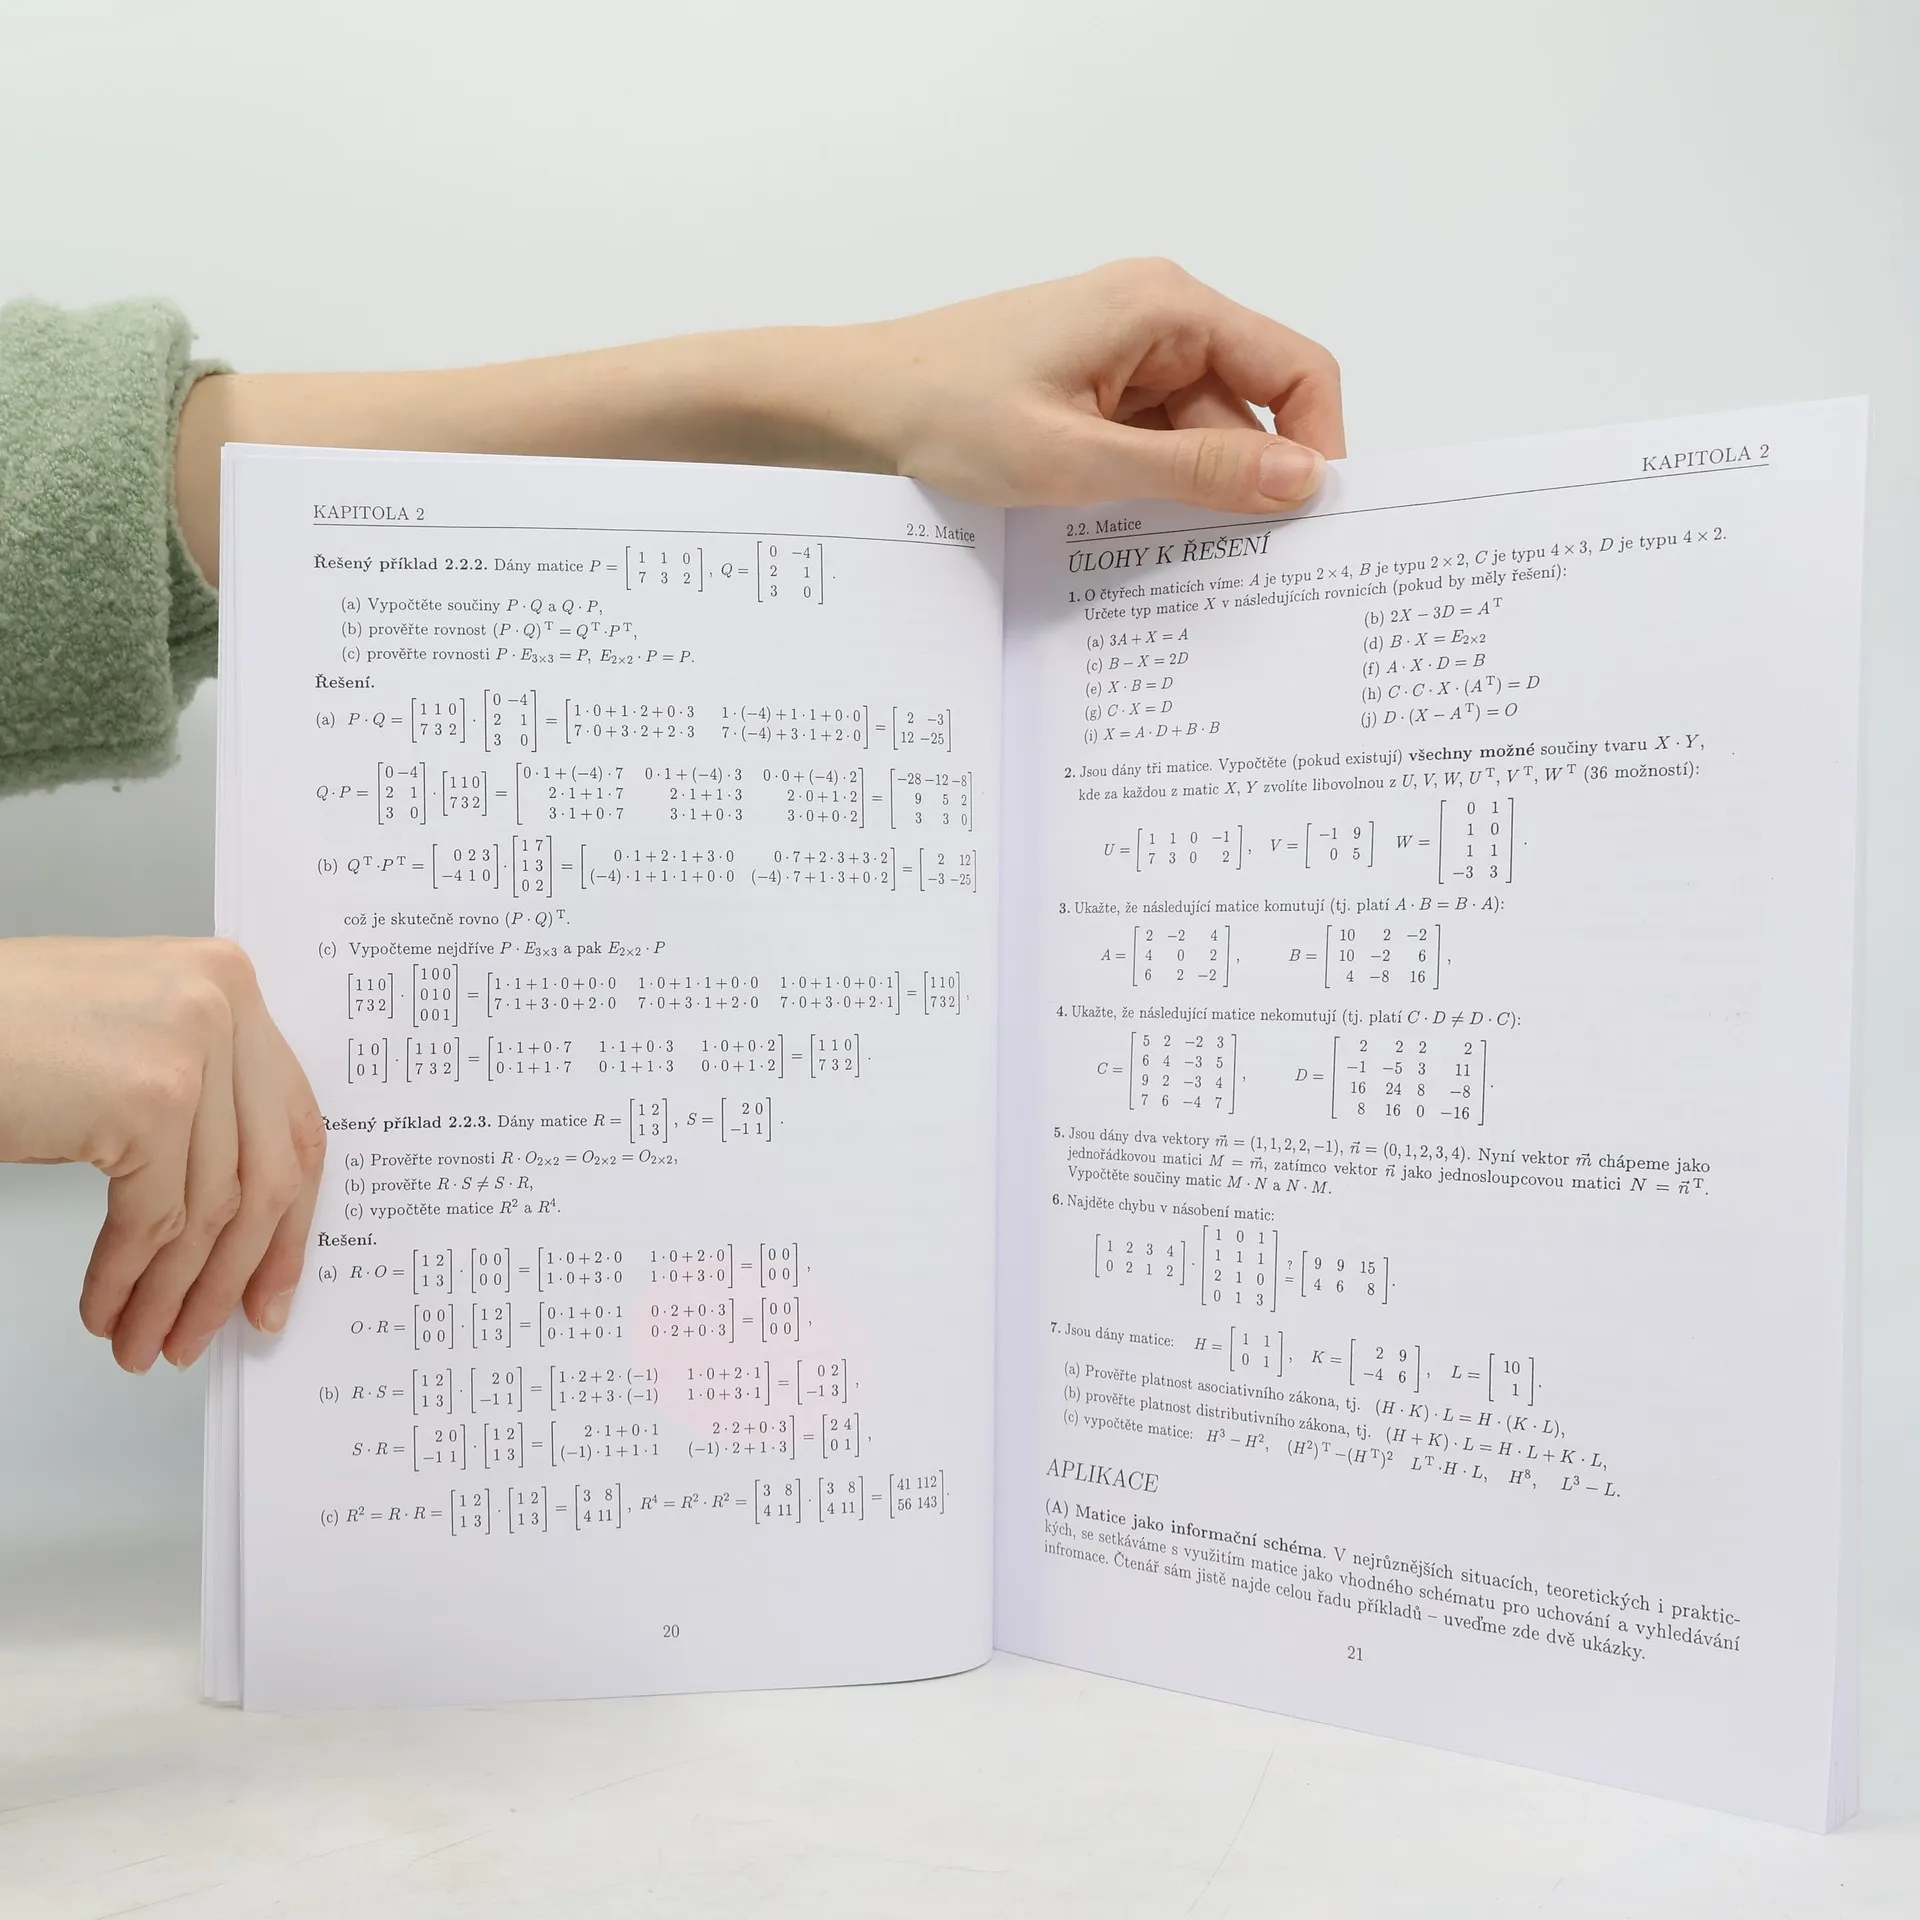 KAPITOLA 2
2.2. Matice
Řešený příklad 2.2.2. Dány matice P = [1 1 0; 7 3 2], Q = [0 −4; 2 1; 3 0].
(a) Vypočtěte součiny P · Q a Q · P,
(b) prověřte rovnost (P · Q)ᵀ = Qᵀ·Pᵀ,
(c) prověřte rovnosti P · E₃ₓ₃ = P, E₂ₓ₂ · P = P.
Řešení.
(a) P · Q = [1 1 0; 7 3 2] · [0 −4; 2 1; 3 0] = [1·0+1·2+0·3 1·(−4)+1·1+0·0; 7·0+3·2+2·3 7·(−4)+3·1+2·0] = [2 −3; 12 −25]
Q · P = [0 −4; 2 1; 3 0] · [1 1 0; 7 3 2] = [0·1+(−4)·7 0·1+(−4)·3 0·0+(−4)·2; 2·1+1·7 2·1+1·3 2·0+1·2; 3·1+0·7 3·1+0·3 3·0+0·2] = [−28 −12 −8; 9 5 2; 3 3 0]
(b) Qᵀ·Pᵀ = [0 2 3; −4 1 0] · [1 7; 1 3; 0 2] = [0·1+2·1+3·0 0·7+2·3+3·2; (−4)·1+1·1+0·0 (−4)·7+1·3+0·2] = [2 12; −3 −25]
což je skutečně rovno (P · Q)ᵀ.
(c) Vypočteme nejdříve P · E₃ₓ₃ a pak E₂ₓ₂ · P
[1 1 0; 7 3 2] · [1 0 0; 0 1 0; 0 0 1] = [1·1+1·0+0·0 1·0+1·1+0·0 1·0+1·0+0·1; 7·1+3·0+2·0 7·0+3·1+2·0 7·0+3·0+2·1] = [1 1 0; 7 3 2],
[1 0; 0 1] · [1 1 0; 7 3 2] = [1·1+0·7 1·1+0·3 1·0+0·2; 0·1+1·7 0·1+1·3 0·0+1·2] = [1 1 0; 7 3 2].
Řešený příklad 2.2.3. Dány matice R = [1 2; 1 3], S = [2 0; −1 1].
(a) Prověřte rovnosti R · O₂ₓ₂ = O₂ₓ₂ = O₂ₓ₂,
(b) prověřte R · S ≠ S · R,
(c) vypočtěte matice R² a R⁴.
Řešení.
(a) R · O = [1 2; 1 3] · [0 0; 0 0] = [1·0+2·0 1·0+2·0; 1·0+3·0 1·0+3·0] = [0 0; 0 0],
O · R = [0 0; 0 0] · [1 2; 1 3] = [0·1+0·1 0·2+0·3; 0·1+0·1 0·2+0·3] = [0 0; 0 0],
(b) R · S = [1 2; 1 3] · [2 0; −1 1] = [1·2+2·(−1) 1·0+2·1; 1·2+3·(−1) 1·0+3·1] = [0 2; −1 3],
S · R = [2 0; −1 1] · [1 2; 1 3] = [2·1+0·1 2·2+0·3; (−1)·1+1·1 (−1)·2+1·3] = [2 4; 0 1],
(c) R² = R · R = [1 2; 1 3] · [1 2; 1 3] = [3 8; 4 11], R⁴ = R² · R² = [3 8; 4 11] · [3 8; 4 11] = [41 112; 56 143].
20
2.2. Matice
KAPITOLA 2
ÚLOHY K ŘEŠENÍ
1. O čtyřech maticích víme: A je typu 2 × 4, B je typu 2 × 2, C je typu 4 × 3, D je typu 4 × 2.
Určete typ matice X v následujících rovnicích (pokud by měly řešení):
(a) 3A + X = A
(b) 2X − 3D = Aᵀ
(c) B − X = 2D
(d) B · X = E₂ₓ₂
(e) X · B = D
(f) A · X · D = B
(g) C · X = D
(h) C · C · X · (Aᵀ) = D
(i) X = A · D + B · B
(j) D · (X − Aᵀ) = O
2. Jsou dány tři matice. Vypočtěte (pokud existují) všechny možné součiny tvaru X · Y,
kde za každou z matic X, Y zvolíte libovolnou z U, V, W, Uᵀ, Vᵀ, Wᵀ (36 možností):
U = [1 1 0 −1; 7 3 0 2], V = [−1 9; 0 5] W = [0 1; 1 0; 1 1; −3 3].
3. Ukažte, že následující matice komutují (tj. platí A · B = B · A):
A = [2 −2 4; 4 0 2; 6 2 −2], B = [10 2 −2; 10 −2 6; 4 −8 16],
4. Ukažte, že následující matice nekomutují (tj. platí C · D ≠ D · C):
C = [5 2 −2 3; 6 4 −3 5; 9 2 −3 4; 7 6 −4 7], D = [2 2 2 2; −1 −5 3 11; 16 24 8 −8; 8 16 0 −16].
5. Jsou dány dva vektory m⃗ = (1, 1, 2, 2, −1), n⃗ = (0, 1, 2, 3, 4). Nyní vektor m⃗ chápeme jako
jednořádkovou matici M = m⃗, zatímco vektor n⃗ jako jednosloupcovou matici N = n⃗ᵀ.
Vypočtěte součiny matic M · N a N · M.
6. Najděte chybu v násobení matic:
[1 2 3 4; 0 2 1 2] · [1 0 1; 1 1 1; 2 1 0; 0 1 3] ?= [9 9 15; 4 6 8].
7. Jsou dány matice: H = [1 1; 0 1], K = [2 9; −4 6], L = [10; 1].
(a) Prověřte platnost asociativního zákona, tj. (H · K) · L = H · (K · L),
(b) prověřte platnost distributivního zákona, tj. (H + K) · L = H · L + K · L,
(c) vypočtěte matice: H³ − H², (H²)ᵀ−(Hᵀ)² Lᵀ·H · L, H⁸, L³ − L.
APLIKACE
(A) Matice jako informační schéma. V nejrůznějších situacích, teoretických i praktic-
kých, se setkáváme s využitím matice jako vhodného schématu pro uchování a vyhledávání
infromace. Čtenář sám jistě najde celou řadu příkladů – uveďme zde dvě ukázky.
21